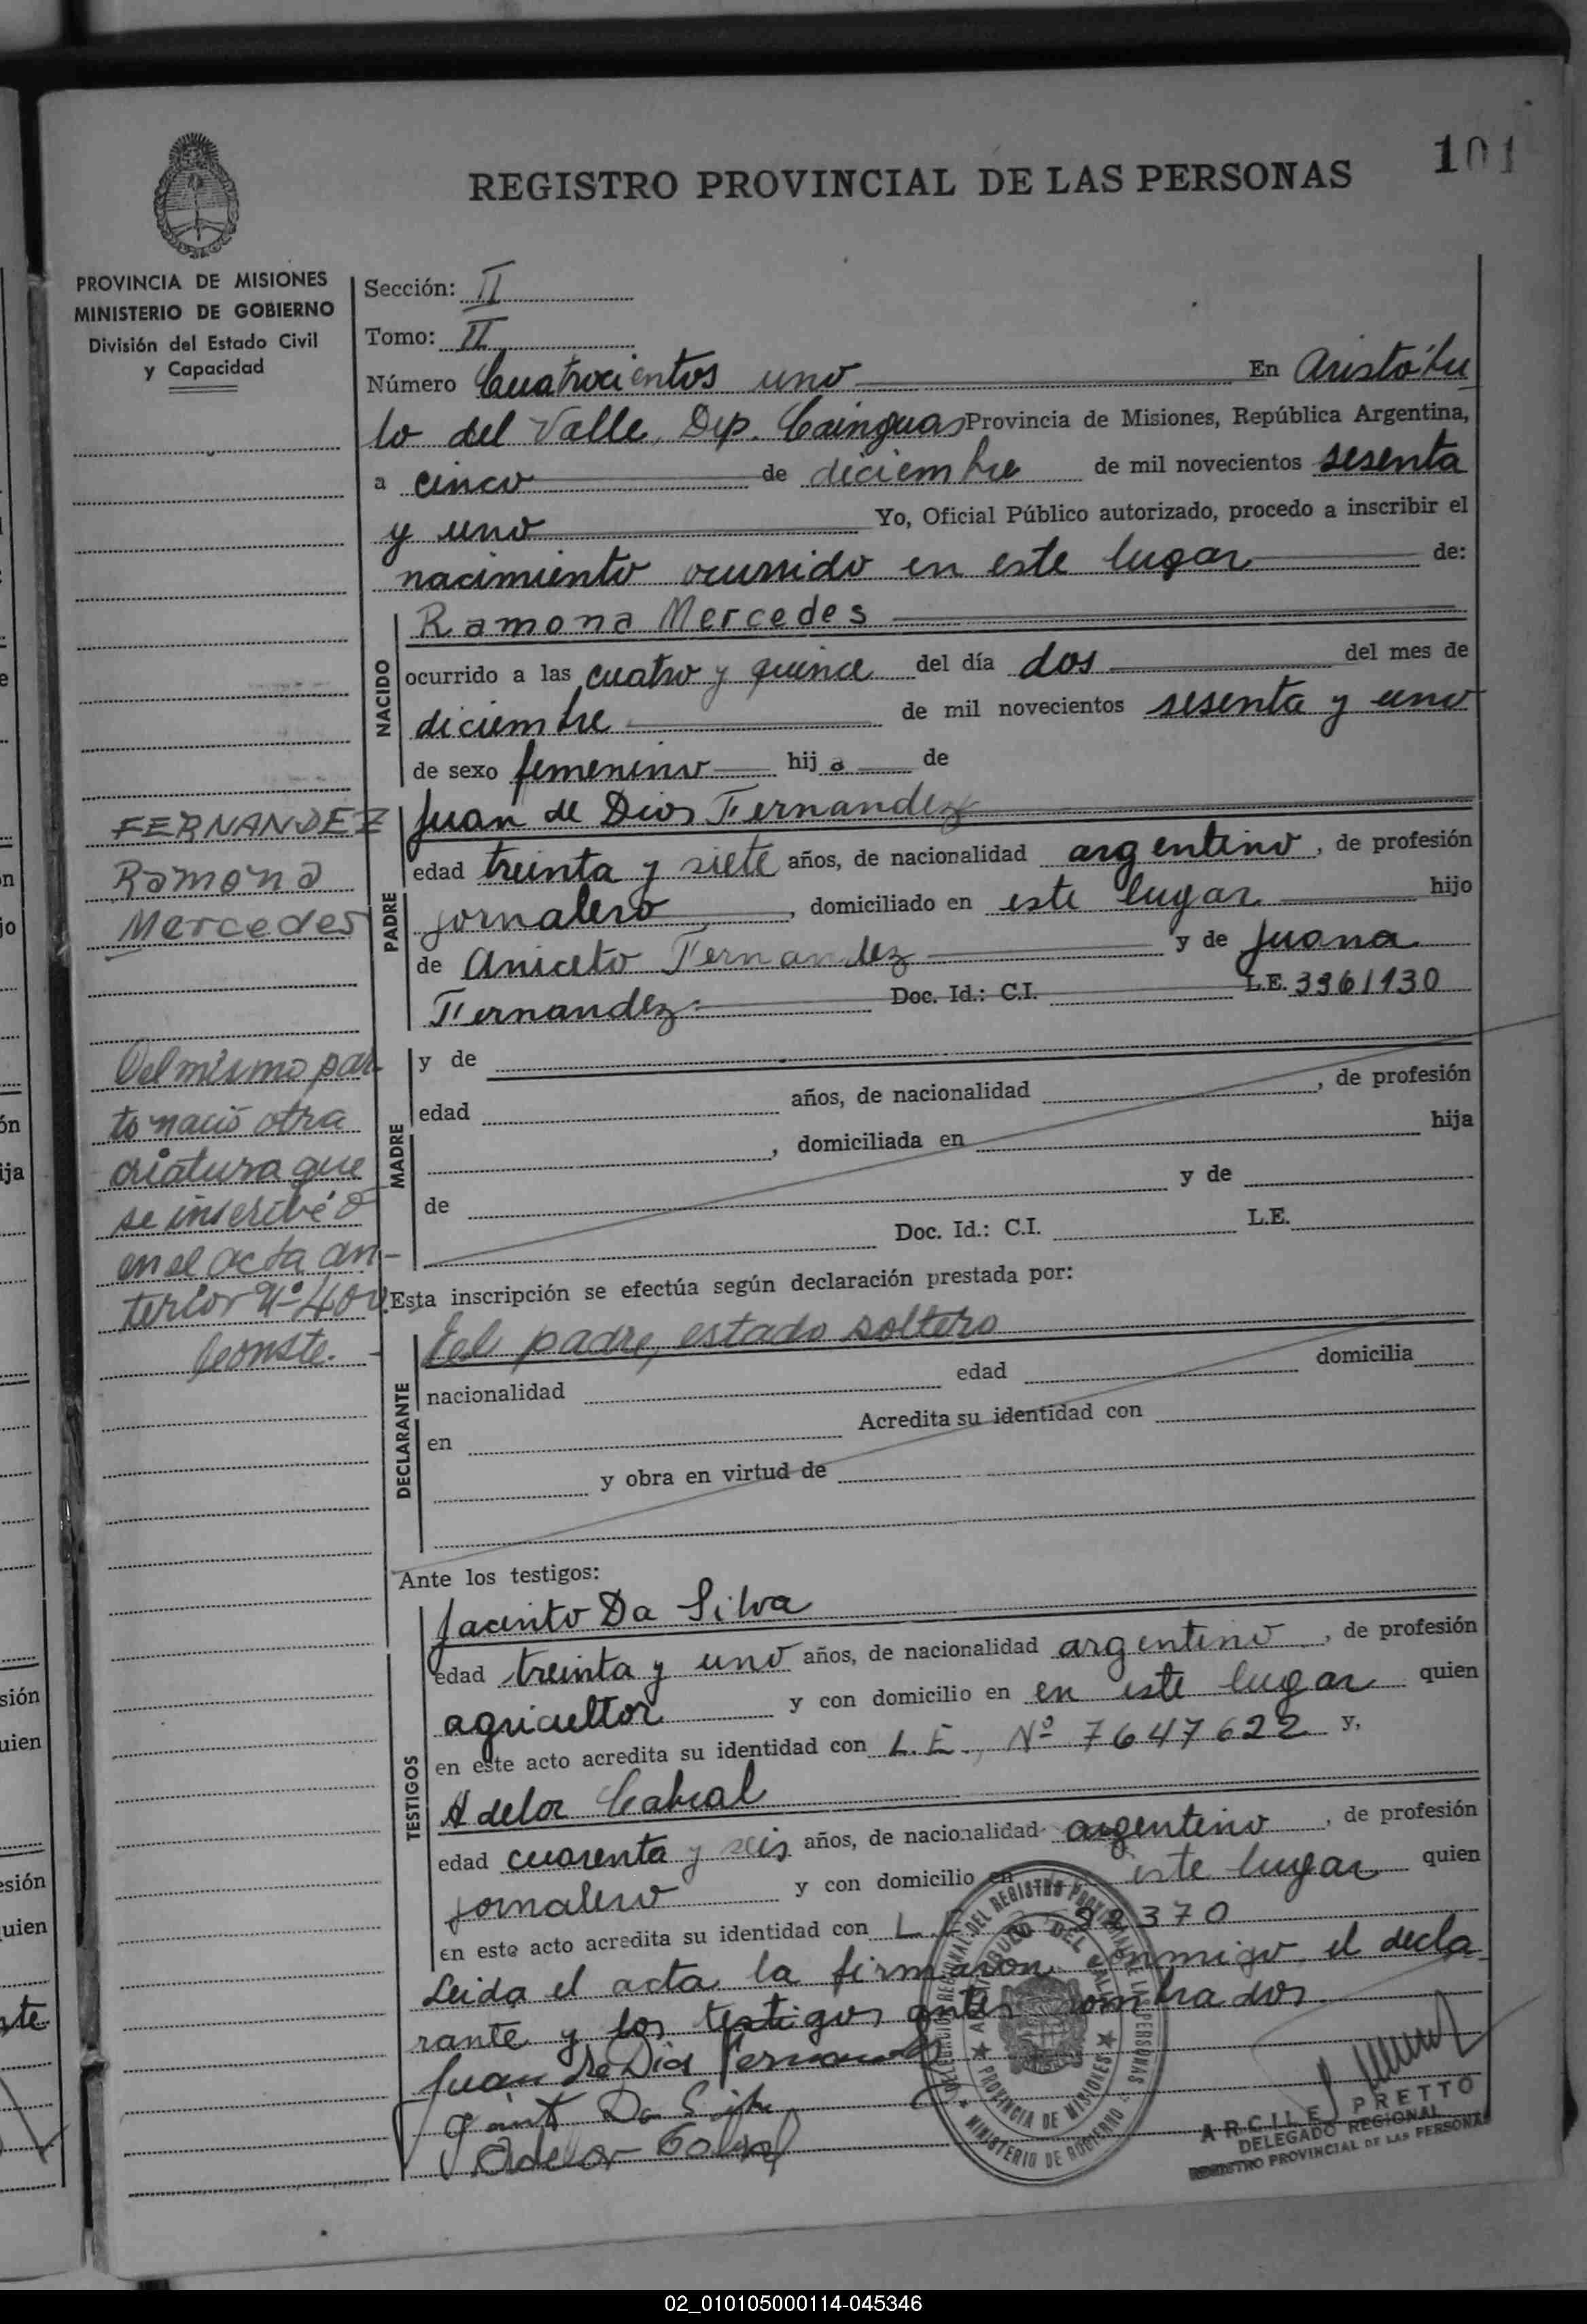 101
REGISTRO PROVINCIAL DE LAS PERSONAS
PROVINCIA DE MISIONES
MINISTERIO DE GOBIERNO
División del Estado Civil
y Capacidad
Sección: II
Tomo: II
Número Cuatrocientos uno En Aristóbu
lo del Valle, Dep. Cainguas Provincia de Misiones, República Argentina,
a cinco de diciembre de mil novecientos sesenta
y uno Yo, Oficial Público autorizado, procedo a inscribir el
nacimiento ocurrido en este lugar de:
NACIDO
Ramona Mercedes
ocurrido a las cuatro y quince del día dos del mes de
diciembre de mil novecientos sesenta y uno
de sexo femenino hij a de
FERNANDEZ
Ramona
Mercedes
PADRE
Juan de Dios Fernandez
edad treinta y siete años, de nacionalidad argentino, de profesión
jornalero, domiciliado en este lugar hijo
de Aniceto Fernandez y de Juana
Fernandez Doc. Id.: C.I. L.E. 3361130
Del mismo par
to nació otra
criatura que
se inscribió
en el acta an-
terior Nº 400.
Conste.
MADRE
y de
edad años, de nacionalidad , de profesión
, domiciliada en hija
de y de
Doc. Id.: C.I. L.E.
Esta inscripción se efectúa según declaración prestada por:
DECLARANTE
el padre, estado soltero
nacionalidad edad domicilia
en Acredita su identidad con
y obra en virtud de
Ante los testigos:
TESTIGOS
Jacinto Da Silva
edad treinta y uno años, de nacionalidad argentino, de profesión
agricultor y con domicilio en en este lugar quien
en este acto acredita su identidad con L.E., Nº 7647622 y,
Adelor Cabral
edad cuarenta y seis años, de nacionalidad argentino, de profesión
jornalero y con domicilio en este lugar quien
en este acto acredita su identidad con L.E. 92370
Leida el acta la firmaron conmigo el decla
rante y los testigos antes nombrados
Juan de Dios Fernandez
Da Silva
Adelor Cabral
DELEGACION REGIONAL DEL REGISTRO PROVINCIAL DE LAS PERSONAS
ARISTOBULO DEL VALLE
PROVINCIA DE MISIONES
MINISTERIO DE GOBIERNO
ARCILE PRETTO
DELEGADO REGIONAL
REGISTRO PROVINCIAL DE LAS PERSONAS
02_010105000114-045346